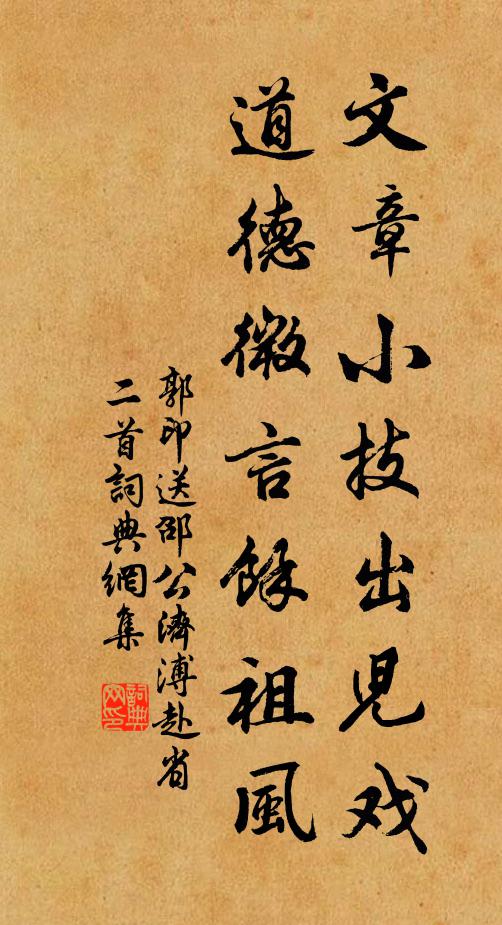 文章小技出児戏
道德微言餘祖風
郭印送邵公濟溥赴省
二首詞典網集
詞典网印